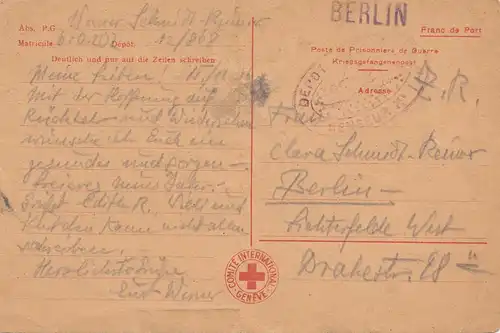 BERLIN
Abs. P.G. Werner Schmidt-Reuwer
Matricule 610.207 Dépôt: 12/868
Deutlich und nur auf die Zeilen schreiben
Meine Lieben!
Mit der Hoffnung auf
und Wiedersehen
wünsche ich Euch ein
gesundes und sorgen-
freieres neues Jahr.
Grüsst Edith R.
kann nicht allen
schreiben.
Herzlichste Grüße
Euer Werner
Franc de Port
Poste de Prisonniers de Guerre
Kriegsgefangenenpost
Adresse
DEPOT
Frau
Clara Schmidt-Reuwer
Berlin-
Lichterfelde West
Drakestr. 28
COMITÉ INTERNATIONAL
GENÈVE